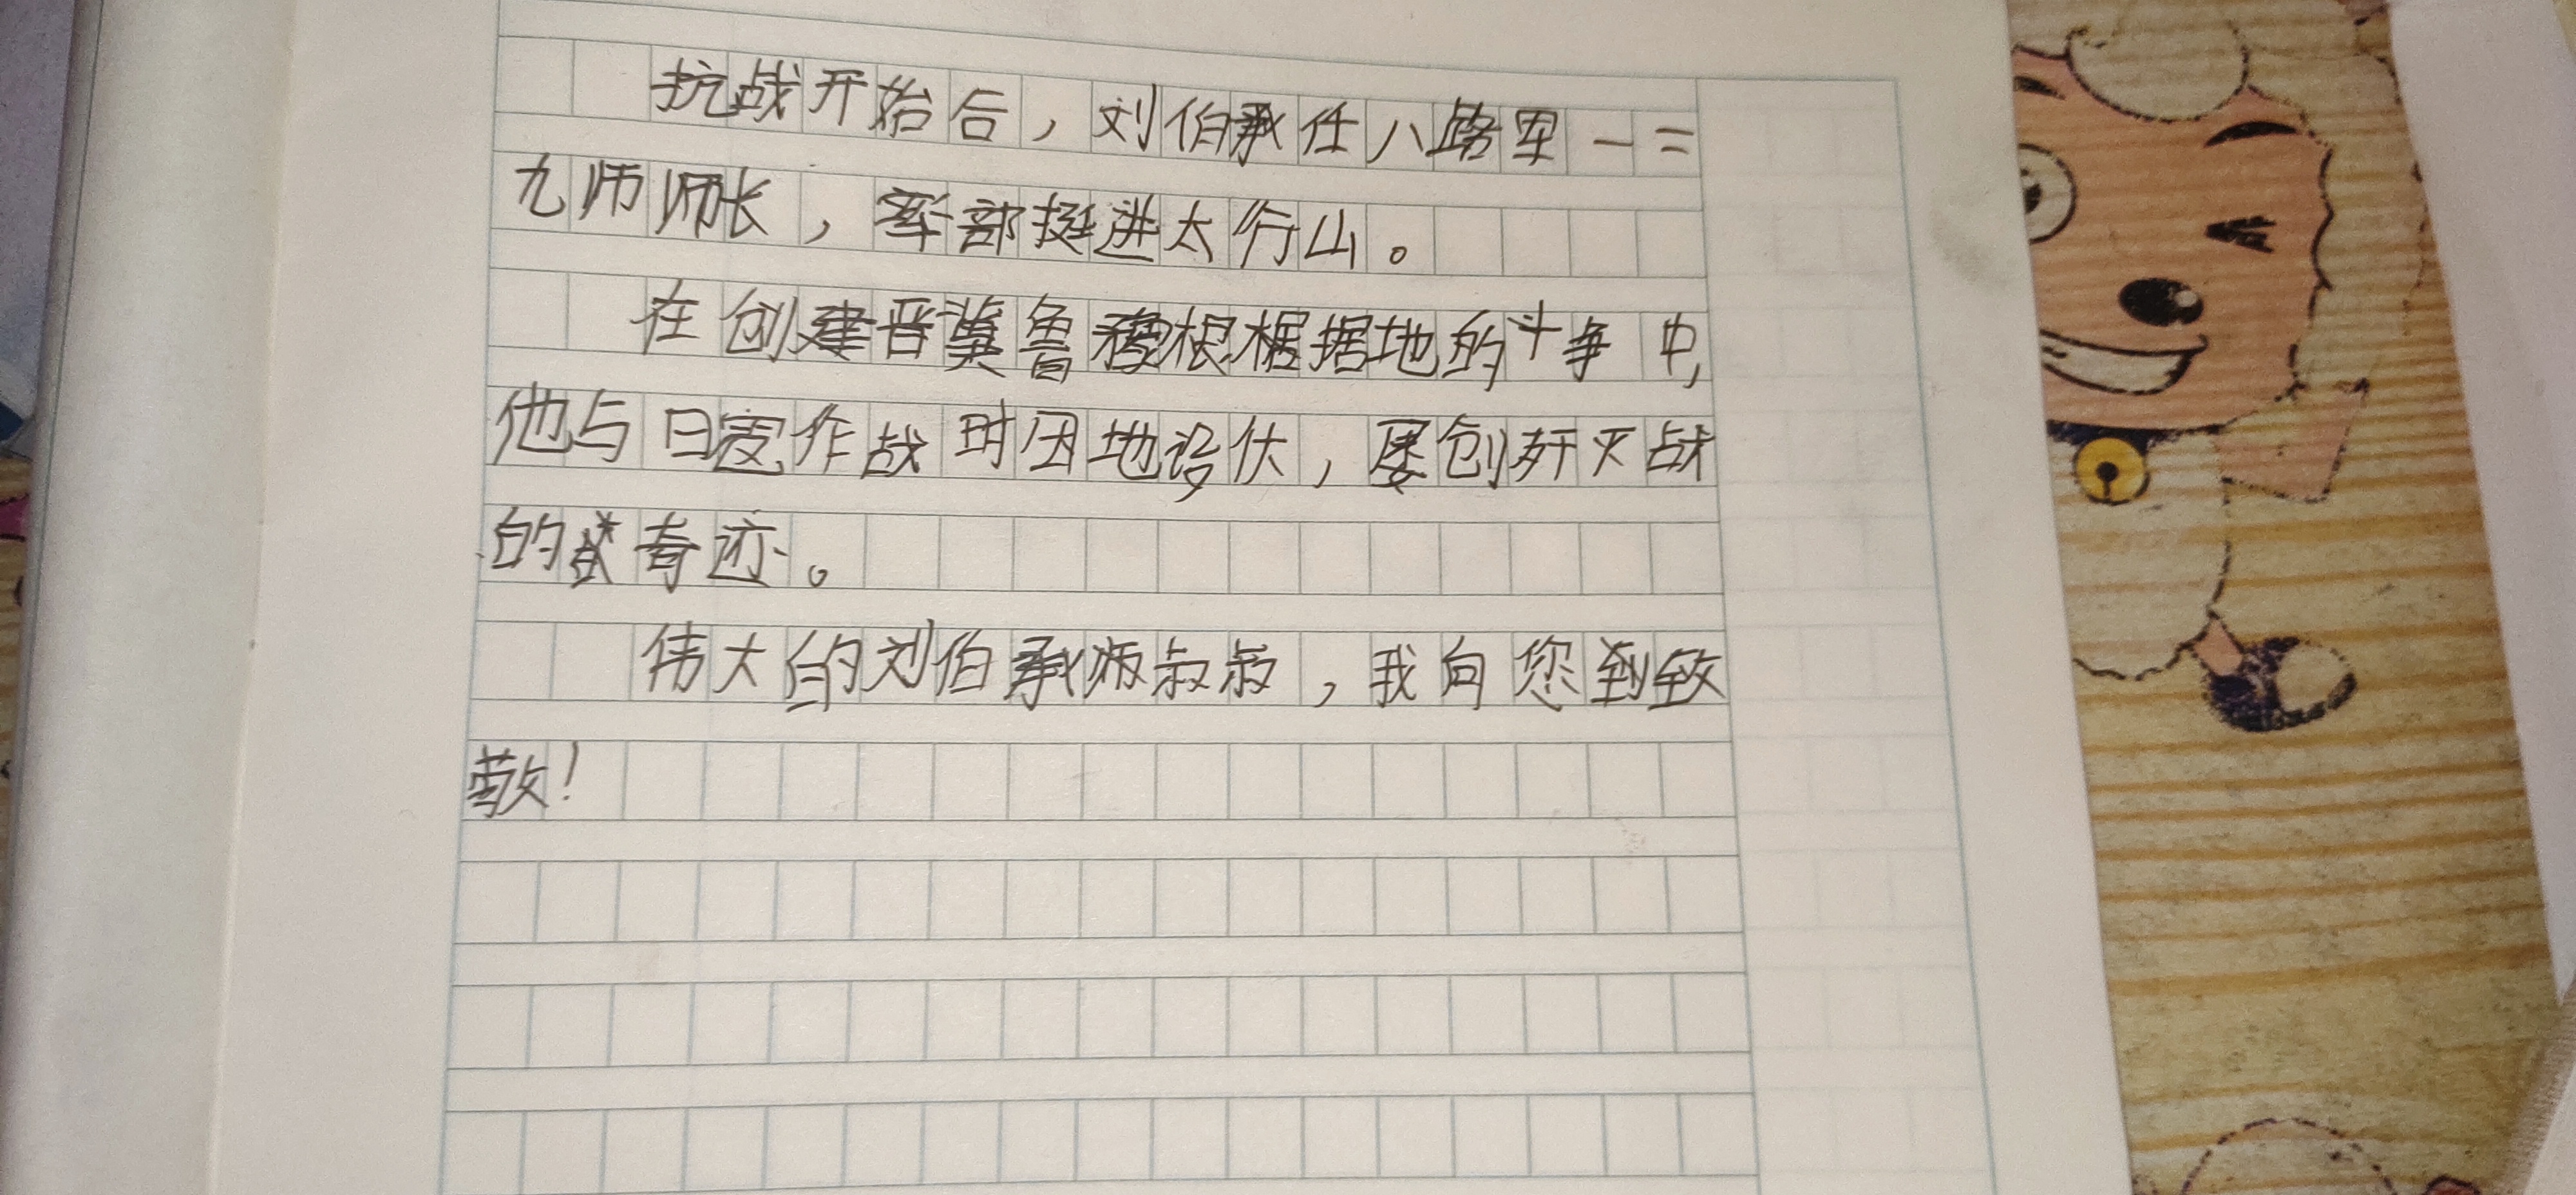 抗战开始后，刘伯承任八路军一二
九师师长，率部挺进太行山。
在创建晋冀鲁豫根据地的斗争中，
他与日寇作战时因地设伏，屡创歼灭战
的奇迹。
伟大的刘伯承叔叔，我向您致
敬！